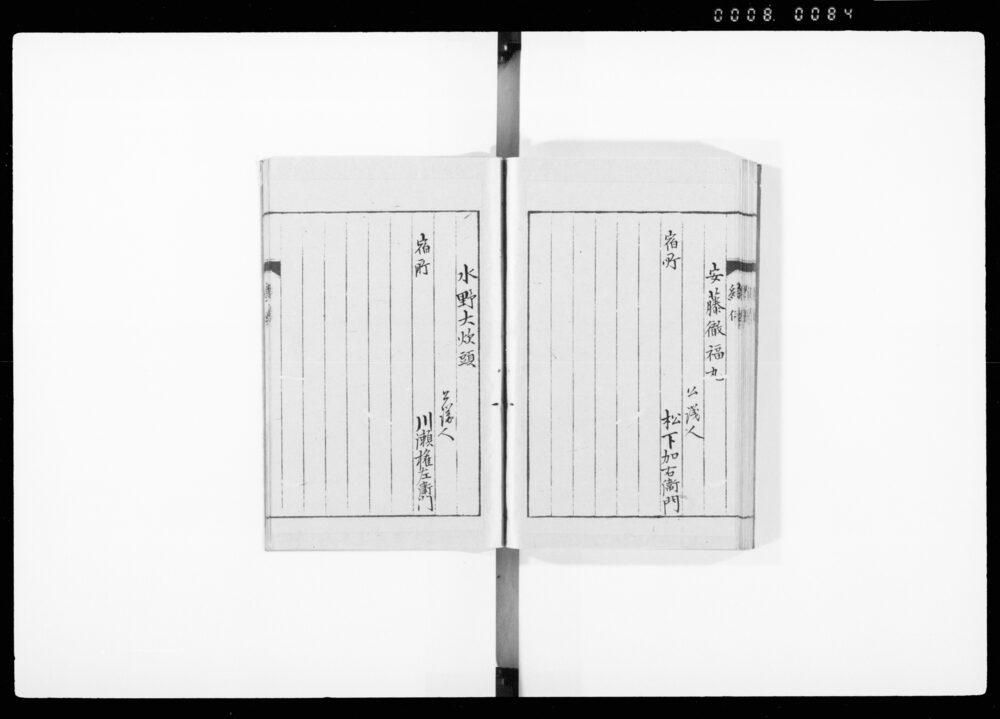 0008. 0084
安藤徹福丸
公儀人
宿所
松下加右衛門
水野大炊頭
公儀人
宿所
川瀬権左衛門